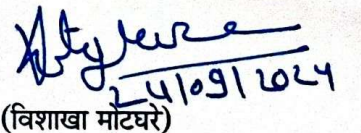 24/09/2024
(विशाखा मोटघरे)